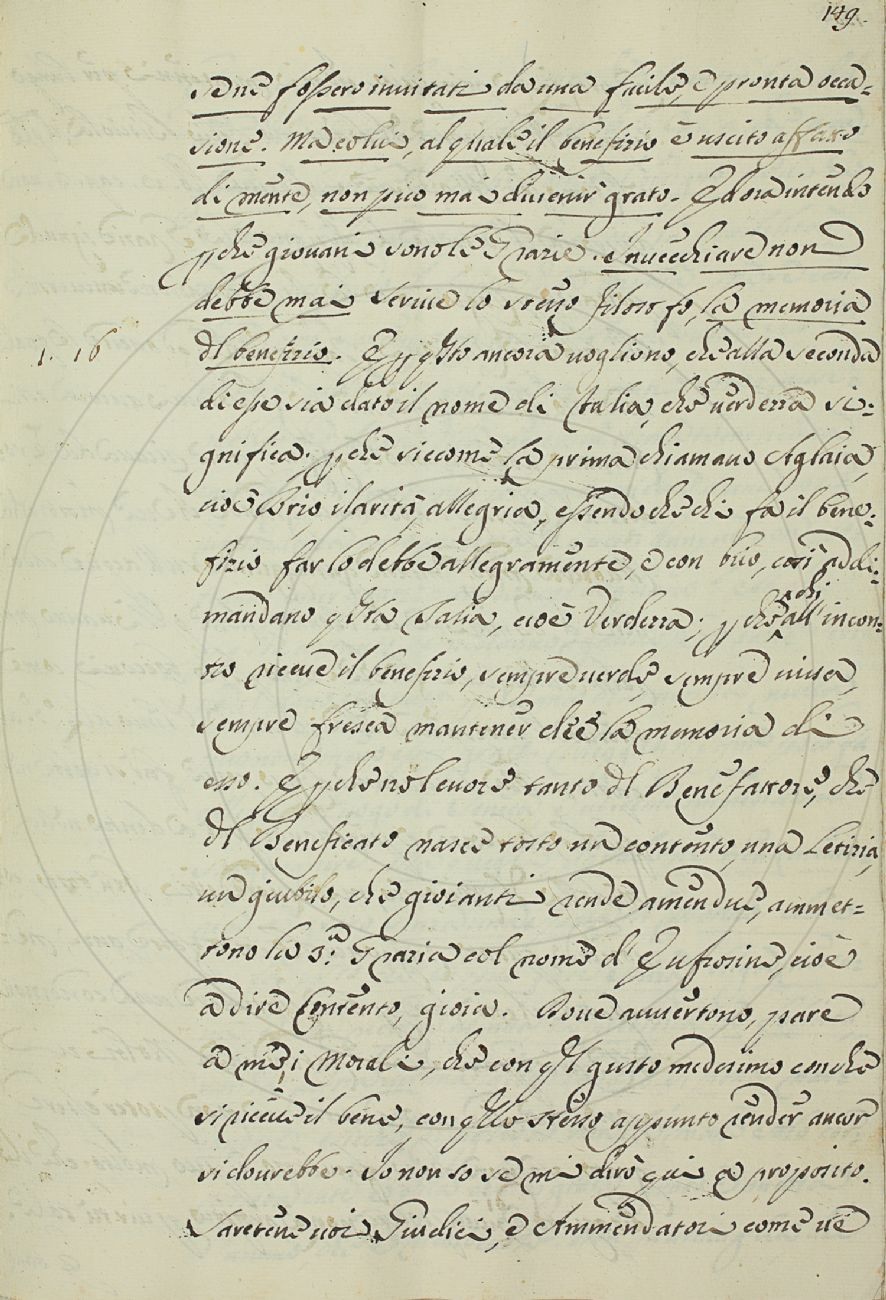 149.
se ne fossero invitati da una facile, e pronta occa=
sione. Ma colui, al quale il benefizio è uscito affatto
di mente, non può mai divenir grato. Ed ora intendo
pche giovani sono le Grazie. Invecchiare non
debbe mai scrive lo stesso filosofo, la memoria
1. 16
dl benefizio. E p qsto ancora vogliono, che alla seconda
di esse sia dato il nome di Talia, che verdezza si=
gnifica; pche siccome la prima chiamano Aglaia,
cioè brio, ilarità, allegria, essendo che chi fa il bene=
fizio far lo debbe allegramente, e con brio, così addi=
mandano qsta Talia, cioè Verdezza; pche chi all'incon=
tro riceve il benefizio, sempre verde, sempre viva,
sempre fresca mantener dee la memoria di
esso. E pche nel cuore tanto dl Benefattore, che
dl Beneficato nasce tosto un contento, una Letizia,
un giubilo, che gioianti rende amendue, ammet=
tono la 3.a Grazia col nome d'Eufrosine, cioè
a dire Contento, gioia. Dove avvertono, pare
a me, i Morali, che con qsl gusto medesimo con che
si riceve il bene, con qllo stesso appunto render ancor
si dovrebbe. Io non so se mi dirò qui a proposito.
Saretene voi Giudici, e Ammendatori come ve